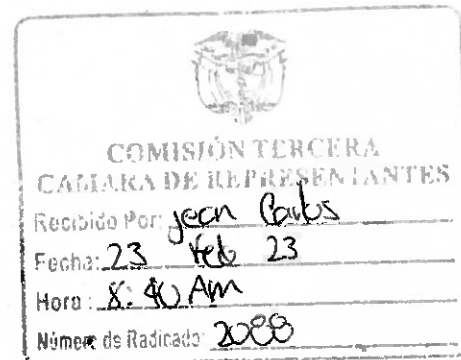 COMISIÓN TERCERA
CAMARA DE REPRESENTANTES
Recibido Por: jean Carlos
Fecha: 23 feb 23
Hora: 8:40 AM
Número de Radicado: 2088